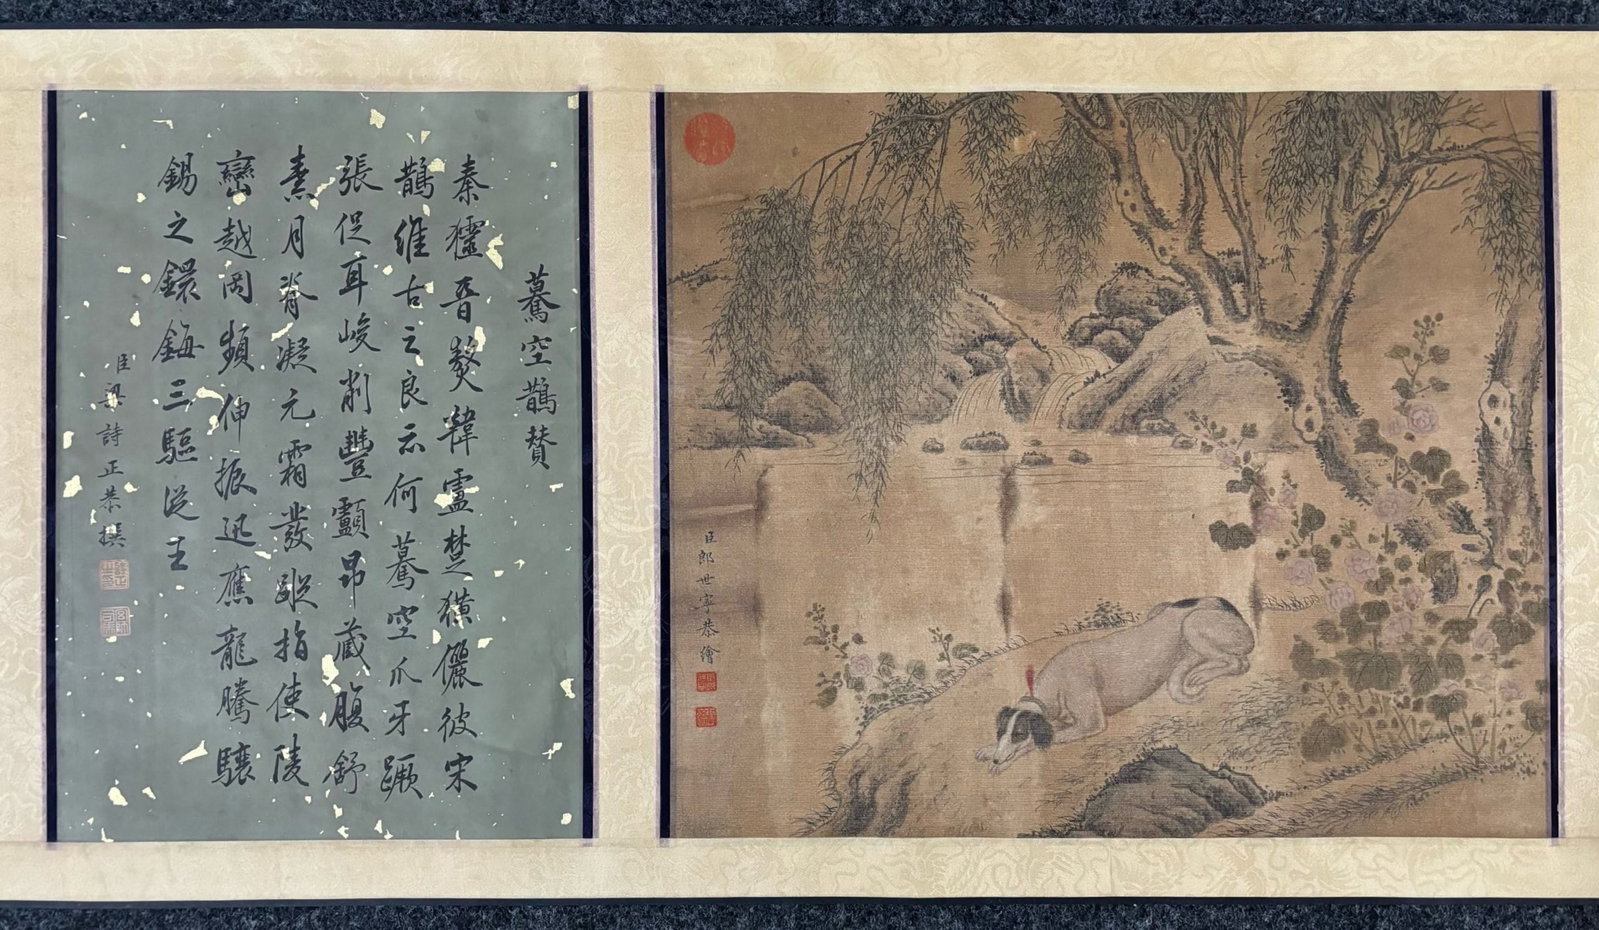 臣郎世寧恭繪
驀空鵲賛
秦晉獒韓盧楚獚儷彼宋
鵲維古之良云何驀空爪牙蹶
張促耳峻削豐顱昂藏腹舒
素月脊凝元霜發蹤指使陵
巒越岡頻伸振迅應龍騰驤
錫之鐶鋂三驅從王
臣梁詩正恭撰